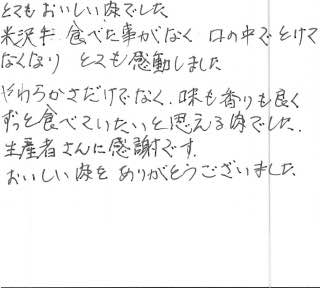 とてもおいしい肉でした
米沢牛 食べた事がなく 口の中でとけて
なくなり とても感動しました
やわらかさだけでなく、味も香りも良く
ずっと食べていたいと思える肉でした。
生産者さんに感謝です。
おいしい肉を ありがとうございました